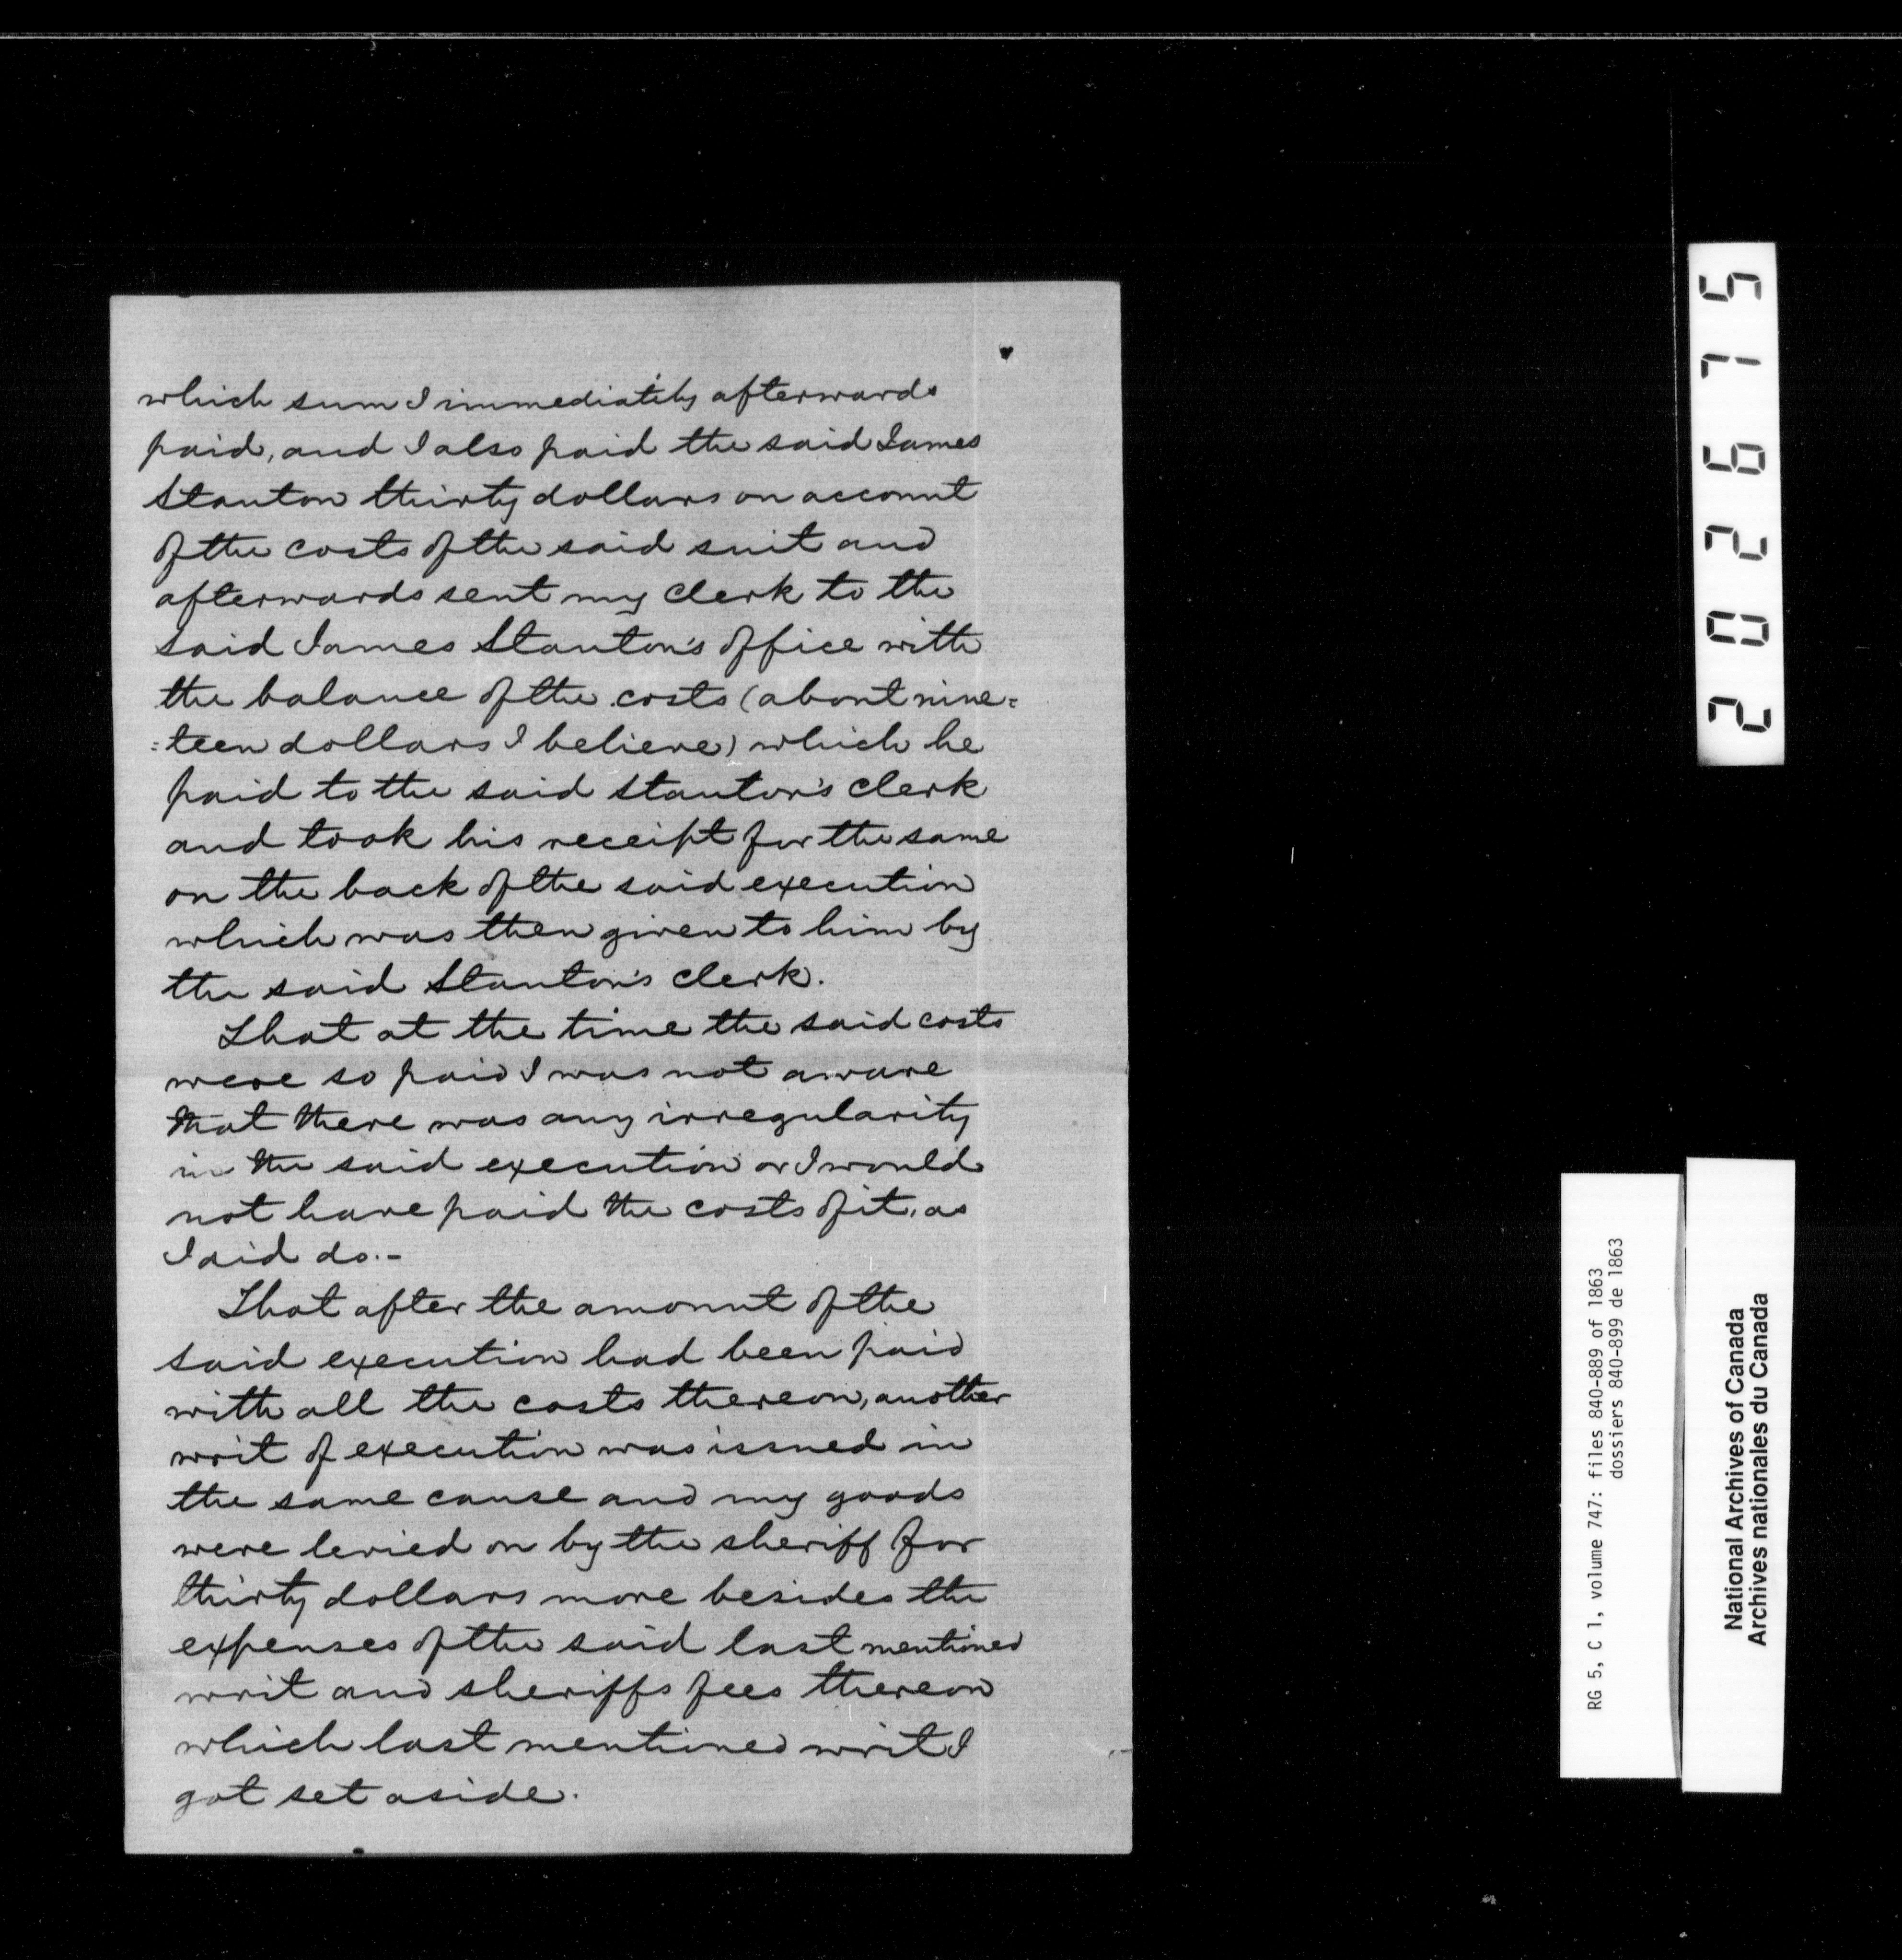 which sum I immediately afterwards
paid, and I also paid the said James
Stanton thirty dollars on account
of the costs of the said suit and
afterwards sent my clerk to the
said James Stanton's office with
the balance of the costs (about nine=
=teen dollars I believe) which he
paid to the said Stanton's clerk
and took his receipt for the same
on the back of the said execution
which was then given to him by
the said Stanton's clerk.
That at the time the said costs
were so paid I was not aware
that there was any irregularity
in the said execution or I would
not have paid the costs of it, as
I did do.-
That after the amount of the
said execution had been paid
with all the costs thereon, another
writ of execution was issued in
the same cause and my goods
were levied on by the sheriff for
thirty dollars more besides the
expenses of the said last mentioned
writ and sheriffs fees thereon
which last mentioned writ I
got set aside.
202675
RG 5, C 1, volume 747: files 840-889 of 1863
dossiers 840-899 de 1863
National Archives of Canada
Archives nationales du Canada